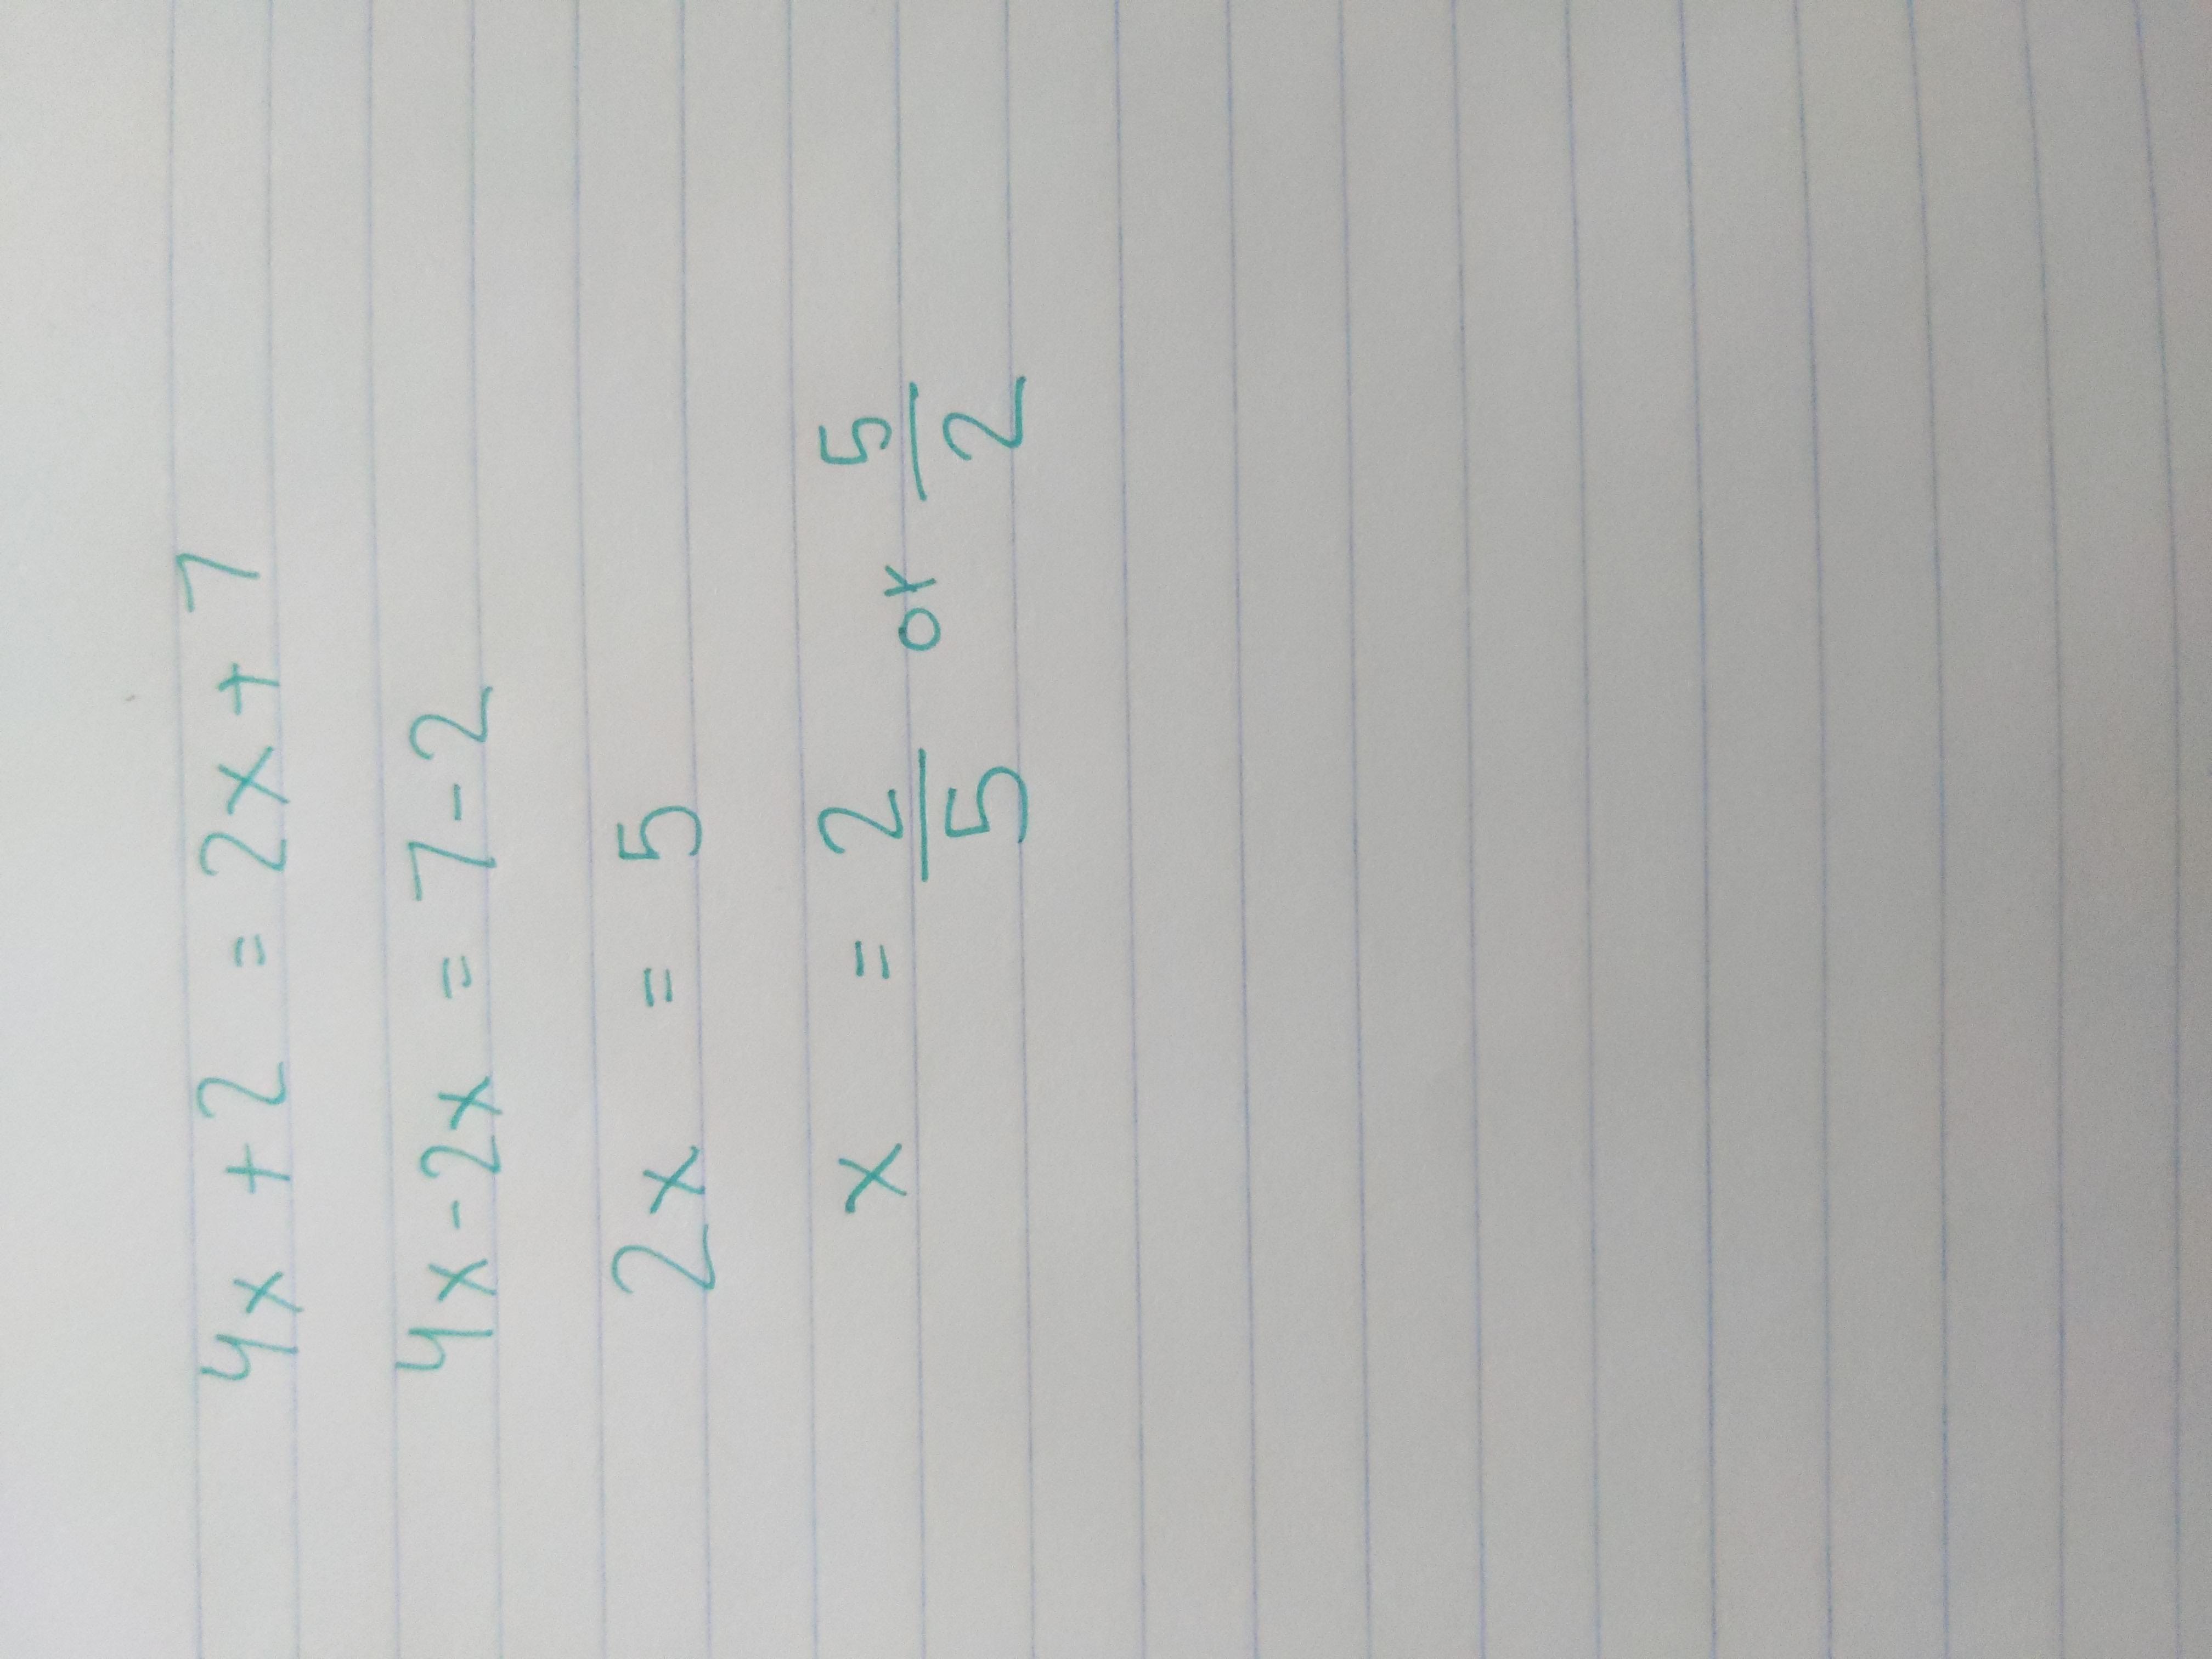 4x + 2 = 2x + 7
4x - 2x = 7 - 2
2x = 5
x = 2/5 or 5/2